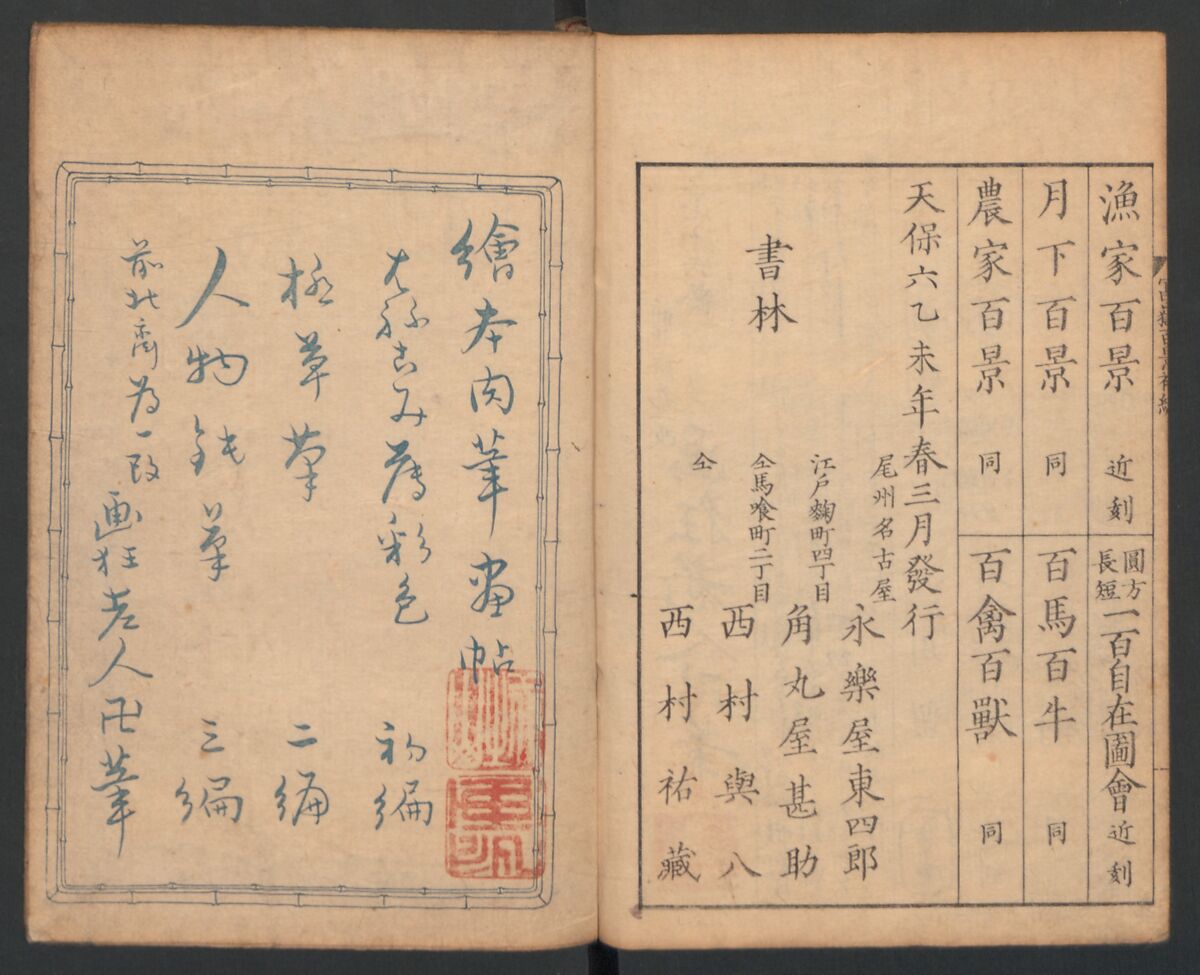 漁家百景 近刻
月下百景 同
農家百景 同
圓方長短 一百自在圖會 近刻
百馬百牛 同
百禽百獸 同
天保六乙未年春三月發行
書林
尾州名古屋 永樂屋東四郎
江戸麹町四丁目 角丸屋甚助
仝馬喰町二丁目 西村與八
仝 西村祐藏
繪本肉筆画帖
はぶこみ薄彩色 初編
極草筆 二編
人物鈍筆 三編
前北斎為一改 画狂老人卍筆